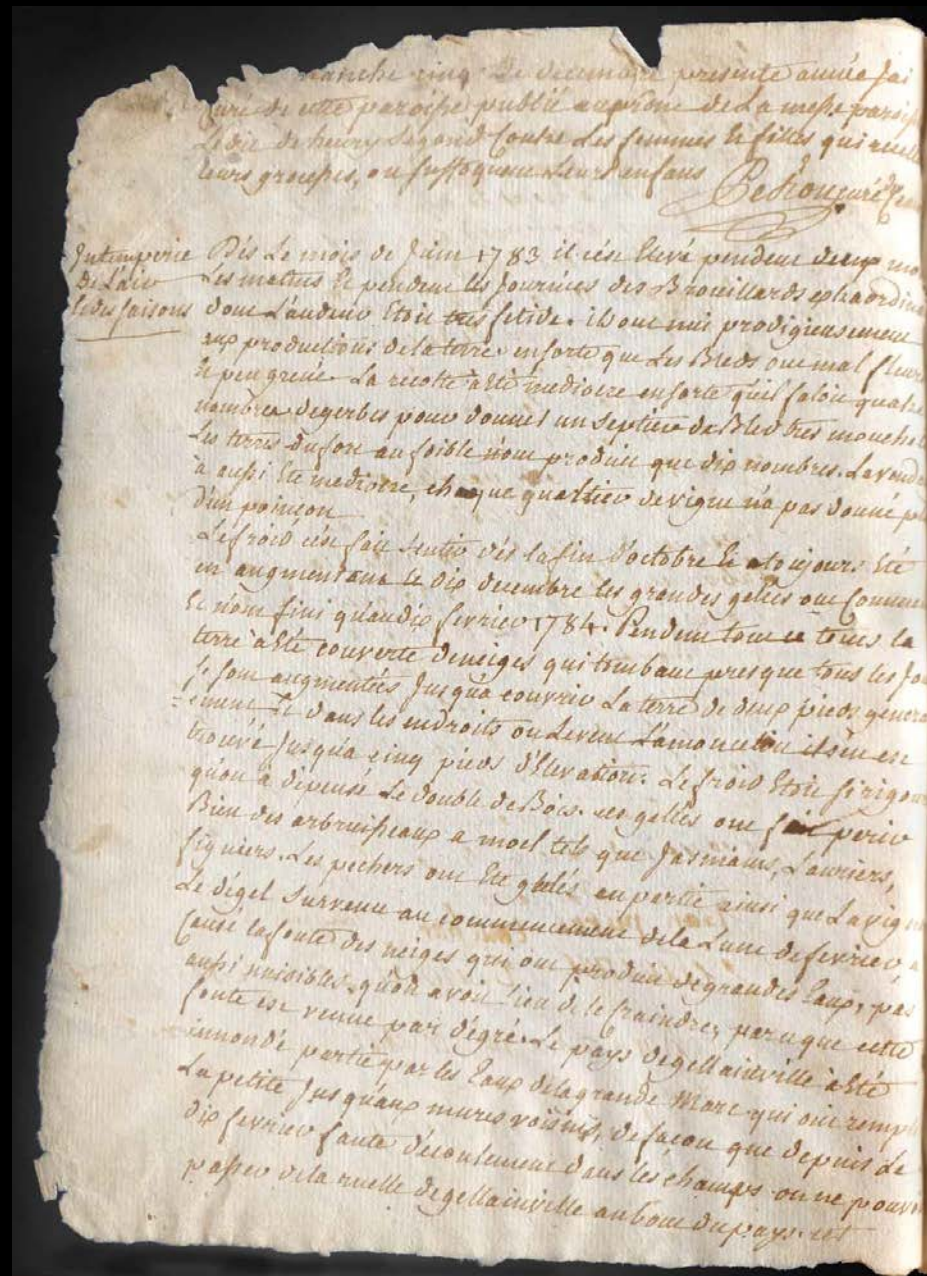 manche cinq De decembre presente année jai
curé de cette paroisse publié au prône de La messe parois
Ledit de henry Segond Contre Les femmes Et filles qui recell
leurs grousses, ou suffoquent Leurs enfans
Pehou curé
Intemperie
De L'air
Et des saisons
Dès Le mois de Juin 1783 il s'est Elevé pendent deux mo
Les matins Et pendent les Journées des Brouillards extraordin
dont L'audeur Etoit tres fetide. ils ont nui prodigieusement
aux productions de la terre ensorte que Les Bleds ont mal fleuri
Et peu grené. La recolte a Eté mediocre ensorte qu'il faloit quatre
nombres de gerbes pour donner un Septier de Bled tres mouche
Les terres du fort au foible n'ont produit que dix nombres. La vend
à aussi Eté mediocre, chaque quartier de vigne n'a pas donné pl
d'un poincon
Le froid s'est fait sentir dès la fin d'octobre Et a toujours Eté
en augmentant le dix decembre les grandes gelées ont Commen
Et n'ont fini qu'au dix fevrier 1784. Pendent tout ce tems la
terre a Eté couverte de neiges qui tombant presque tous les Jou
se sont augmentées Jusqu'a couvrir La terre de deux pieds genera
=ement Et dans les endroits ou Le vent L'amonceloit il s'en est
trouvé Jusqu'a cinq pieds d'Elevation. Le froid Etoit si rigour
qu'on a depensé Le double de Bois. ces gellées ont fait perir
Bien des arbruisseaux a moel tels que Jasmains, Lauriers,
figuiers. Les pechers ont Eté gelés en partie ainsi que La vigne
Le dégel Survenu au commencement de la Lune de fevrier a
Causé la fonte des neiges qui ont produit de grandes Eaux, pas
aussi nuisibles qu'on avoit lieu de le craindre, parceque cette
fonte est venue par dégré. Le pays de gellainville à Eté
innondé partie par les Eaux de la grande Mare qui ont rempli
La petite Jusqu'aux mures voisins, de facon que depuis Le
dix fevrier faute d'ecoulement dans les champs on ne pouvoi
passer de la ruelle de gellainville au bout du pays. cet